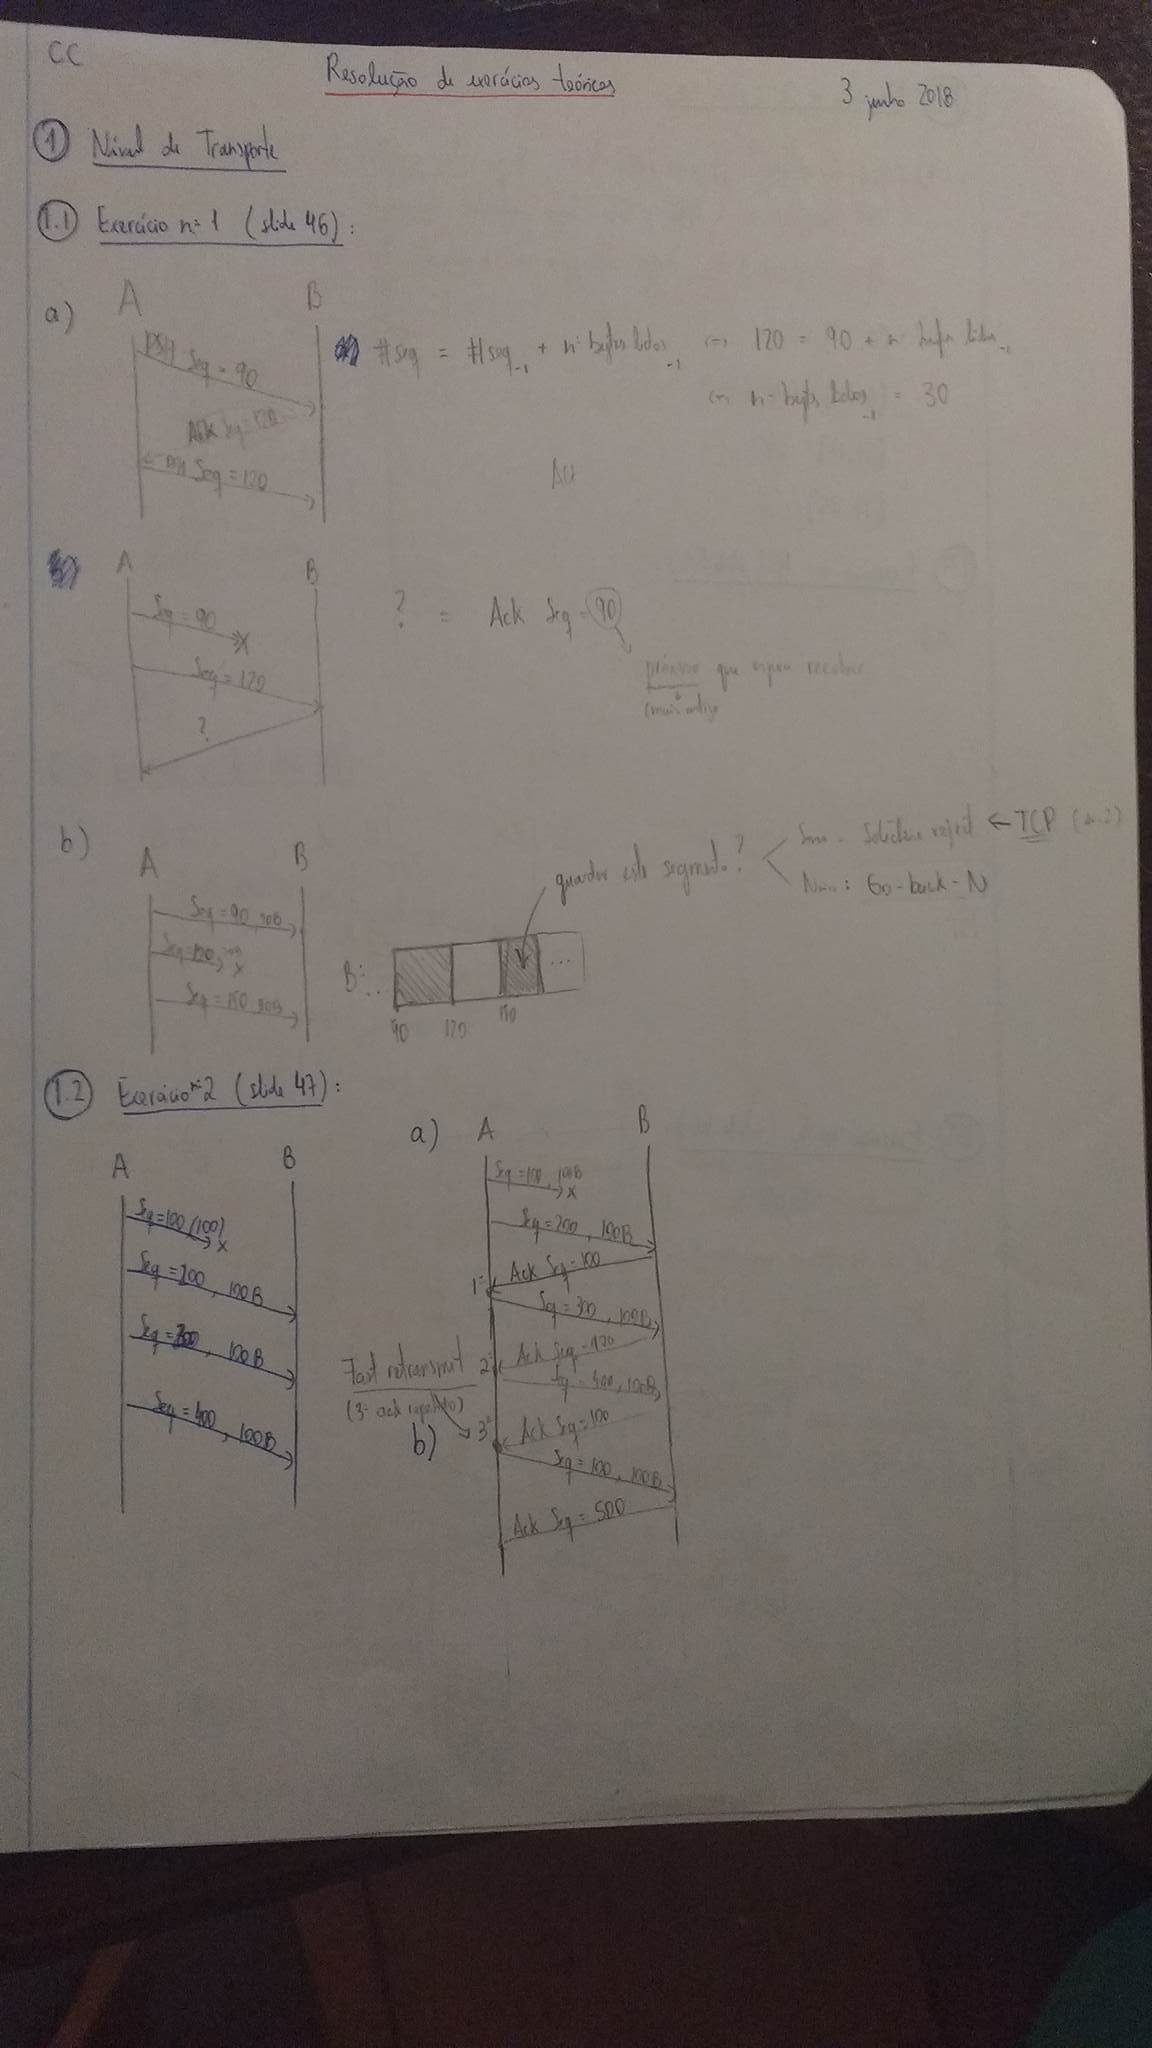 CC
Resolução de exercícios teóricos
3 junho 2018
1 Nível de Transporte
1.1 Exercício nº 1 (slide 46):
a)
A B
PSH Seq = 90
Ack Seq = 120
PSH Seq = 120
#seq = #seq-1 + nº bytes lidos-1 ⇔ 120 = 90 + nº bytes lidos-1
⇔ nº bytes lidos-1 = 30
A B
Seq = 90
x
Seq = 120
?
? = Ack Seq = 90
próximo que espera receber
(mais antigo
b)
A B
Seq = 90, 30B
Seq = 120, 30B
x
Seq = 150, 30B
guardar este segmento?
Sim: selective reject ← TCP
Não: Go-back-N
B: ...
90 120 150
1.2 Exercício nº 2 (slide 47):
A B
Seq = 100 (100)
x
Seq = 200, 100B
Seq = 300, 100B
Seq = 400, 100B
a)
A B
Seq = 100, 100B
x
Seq = 200, 100B
1º Ack Seq = 100
Seq = 300, 100B
2º Ack Seq = 100
Seq = 400, 100B
Fast retransmit
(3º ack repetido)
b)
3º Ack Seq = 100
Seq = 100, 100B
Ack Seq = 500